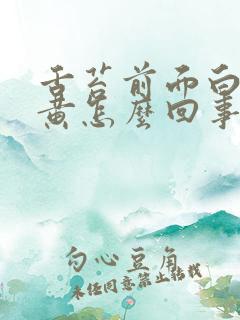 舌苔前面白
黄怎麼回事
勾心豆角
未经同意禁止转载